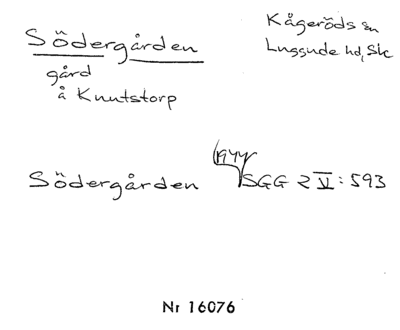 Södergården
Kågeröds sn
Luggude hd, Sk
gård
å Knutstorp
1944
Södergården SGG 2 V : 593
Nr 16076